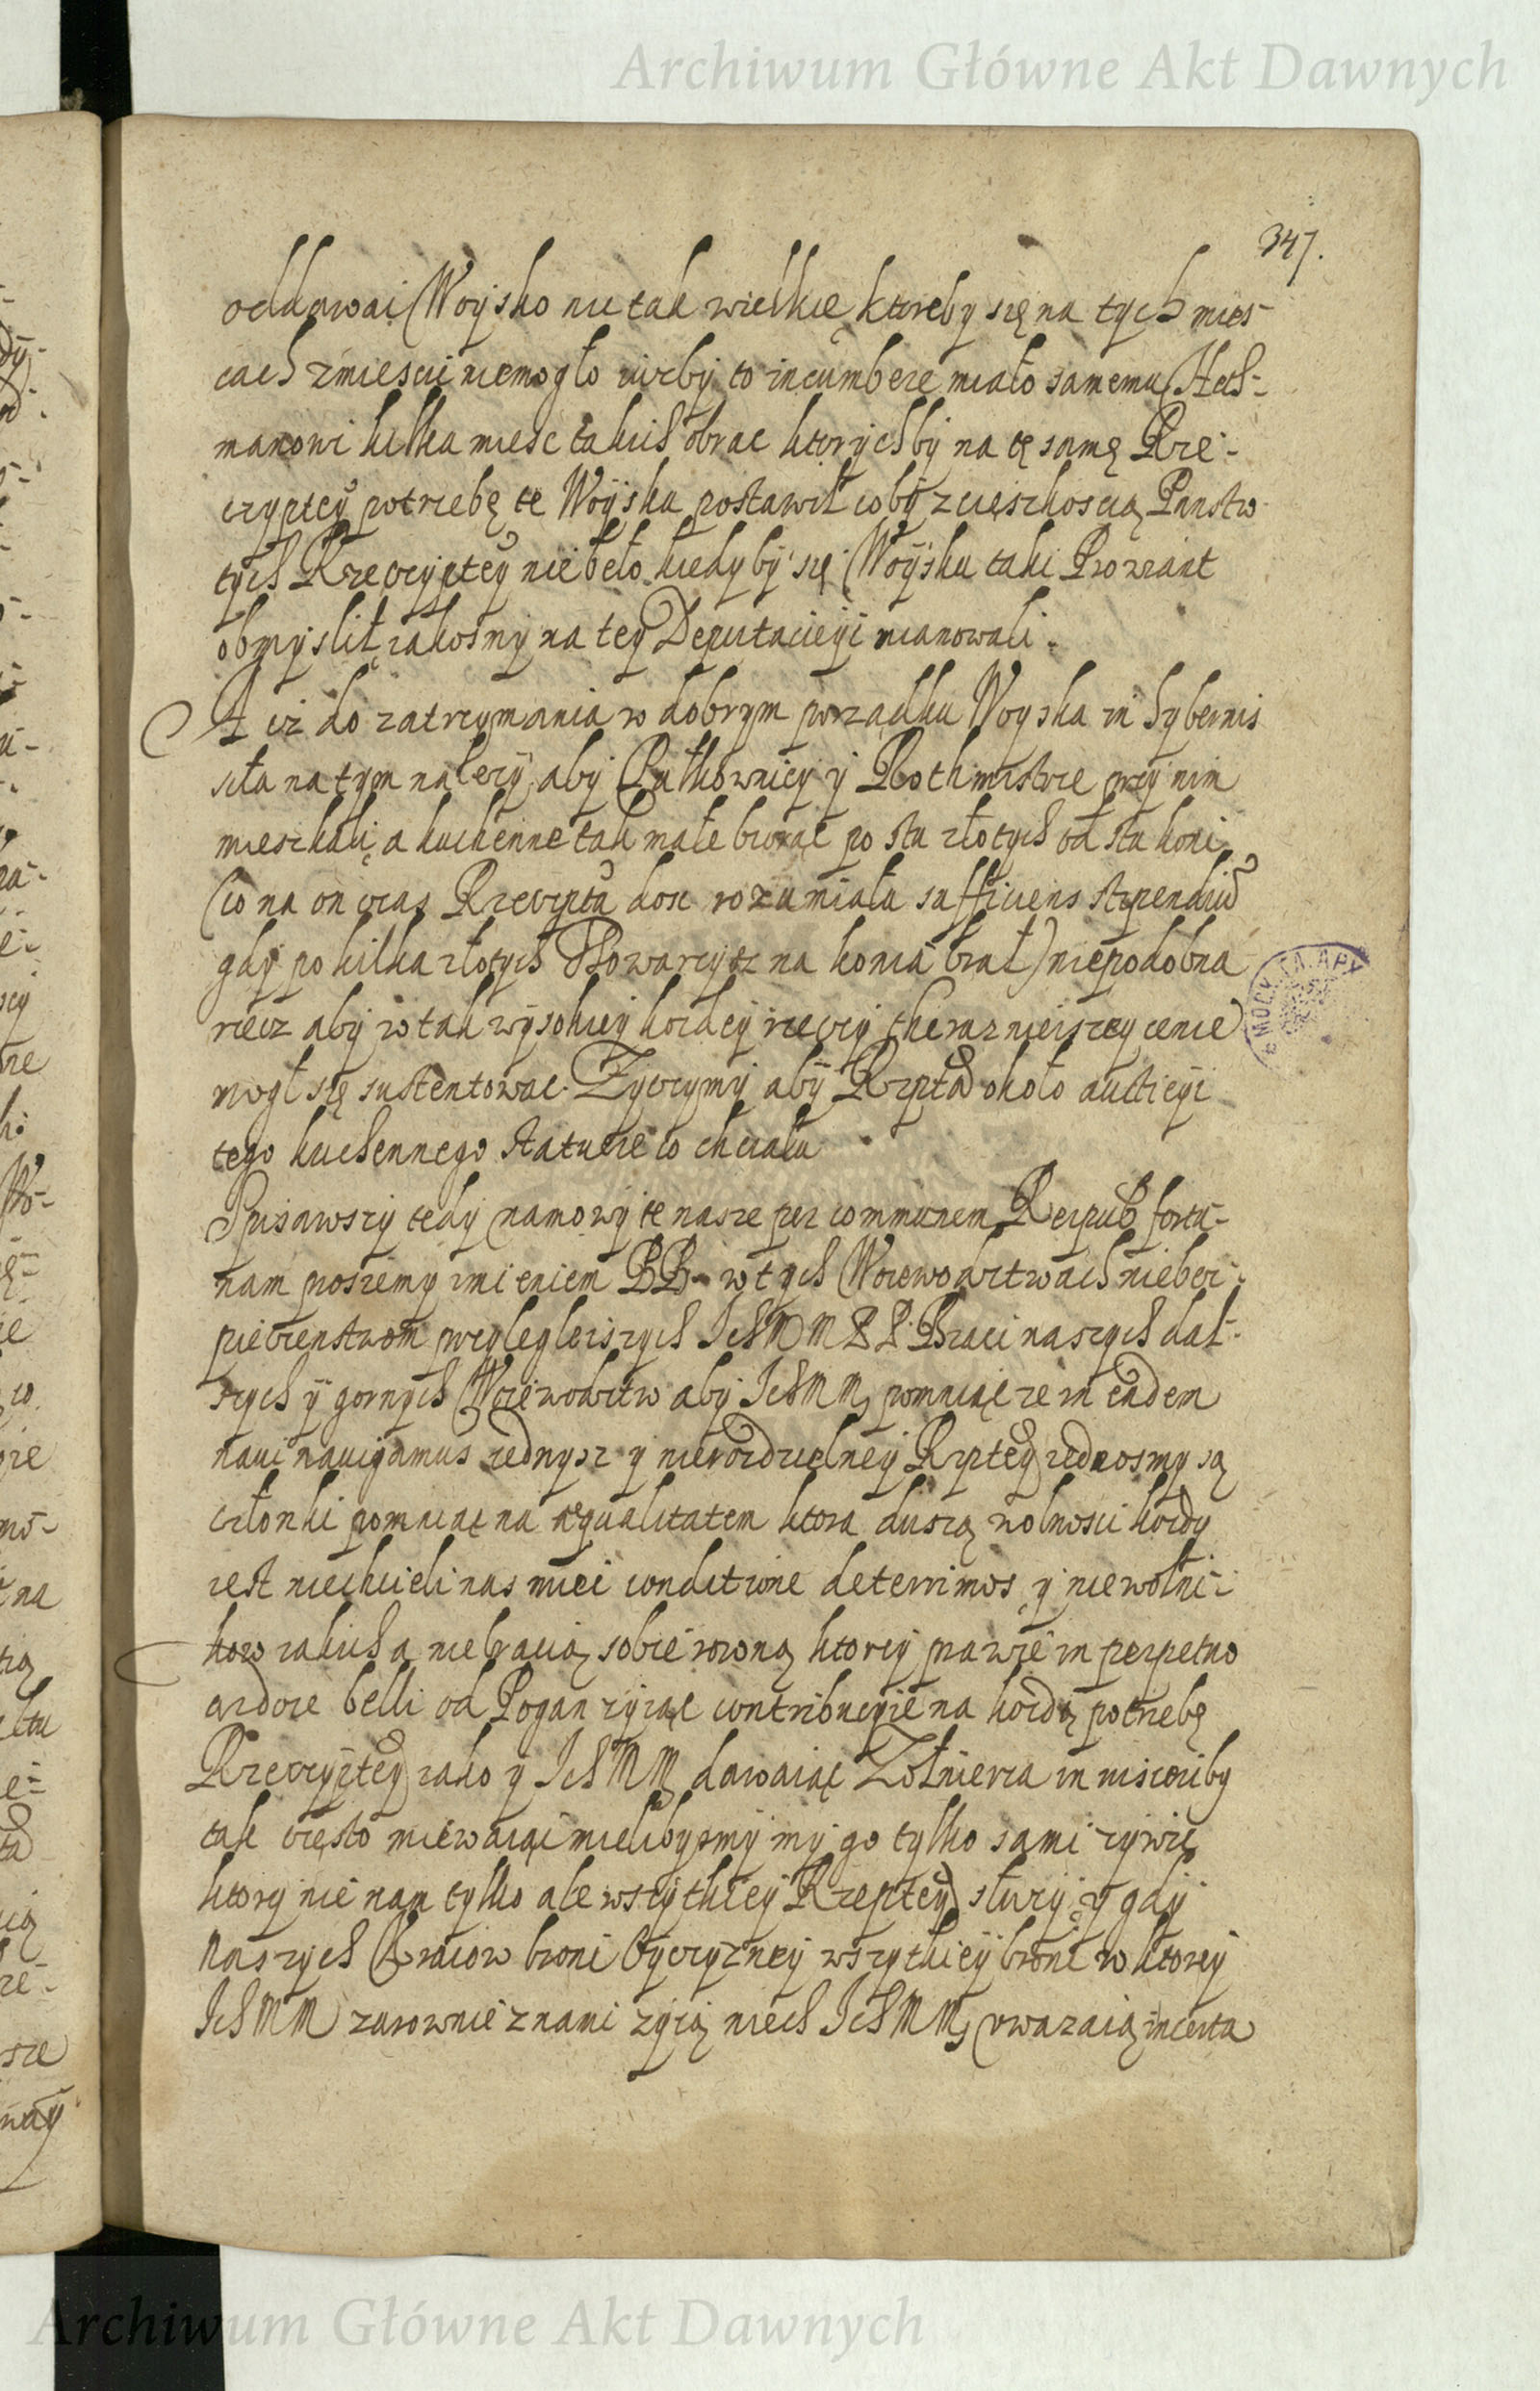 Archiwum Główne Akt Dawnych
347.
oddawai Woysko nie tak wielkie ktoreby się na tych mies-
cach zmiescic niemogło iużby to incumbere miało samemu Het-
manowi kilka miesc takich obrac ktorychby na tę samę Rze-
czyptey potrzebę te Woysku postawił coby z cięszkoscią Panstw
tych Rzeczyptey nie beło kiedyby się Woysku taki Prowiant
obmyslił iakosmy na tey Deputacieyi mianowali.
A iż do zatrzymania w dobrym porządku Woyska in hybernis
siła na tym należy, aby Pułkownicy y Rothmistrze przy nim
mieszkali, a kuchenne tak małe biorąc po stu złotych od stu koni
(co na on czas Rzeczpta dosc rozumiała sufficiens stipendiu
gdy po kilka złotych Thowarzysz na konia brał) niepodobna
rzecz aby w tak wysokiey kozdey rzeczy theraznieiszey cenie
mogł się sustentowac. Zyczymy aby Rzpta około auctieyi
tego kuchennego statuere co chciała
Spisawszy tedy namowy te nasze per communem Reipub fortu-
nam prosiemy imieniem BB w tych Woiewodztwach niebez-
pieczenstwom przylegleiszych IchMM PP Braci naszych dal-
szych y gornych Woiewodztw aby IchMM pomniąc ze in eadem
naui nauigamus iednysz y nierozdzielney Rzptey iednosmy są
członki pomniąc na æqualitatem ktora duszą wolnosci kozdy
iest niechcieli nas miec conditione deterrimos, y niewolni-
kow iakich a nie bracią sobie rowną ktorzy prawie in perpetuo
ardore belli od Pogan zyiąc contribucyie na kozdą potrzebę
Rzeczyptey iako y IchMM dawaiąc Zołnierza in
tak często miewaiąc mielibysmy my go tylko sami zywic
ktory nie nam tylko ale wszytkiey Rzeptey słuzy, y gdy
naszych Kraiow broni Oyczyzney wszytkiey broni w ktorey
IchMM zarownie z nami zyią niech IchMM uwazaią incerta
Archiwum Główne Akt Dawnych